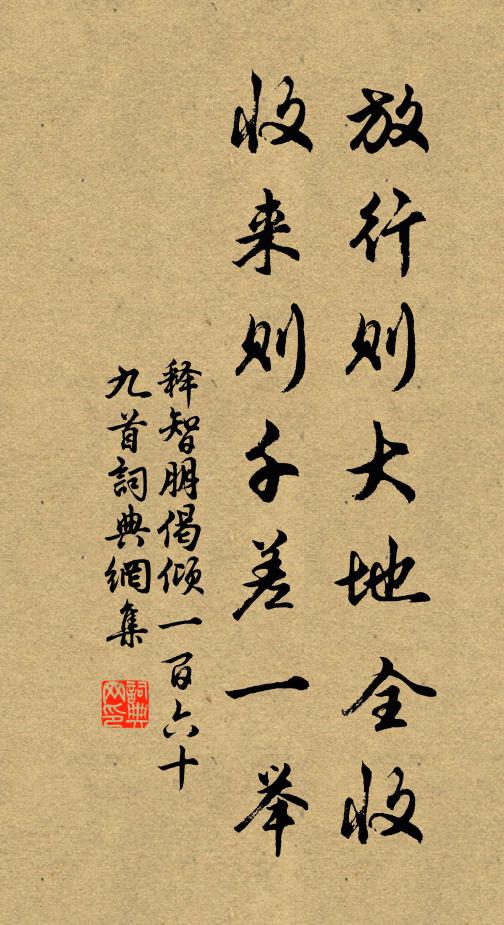 放行则大地全收
收来则千差一举
释智朋偈倾一百六十
九首詞典網集
詞典网印